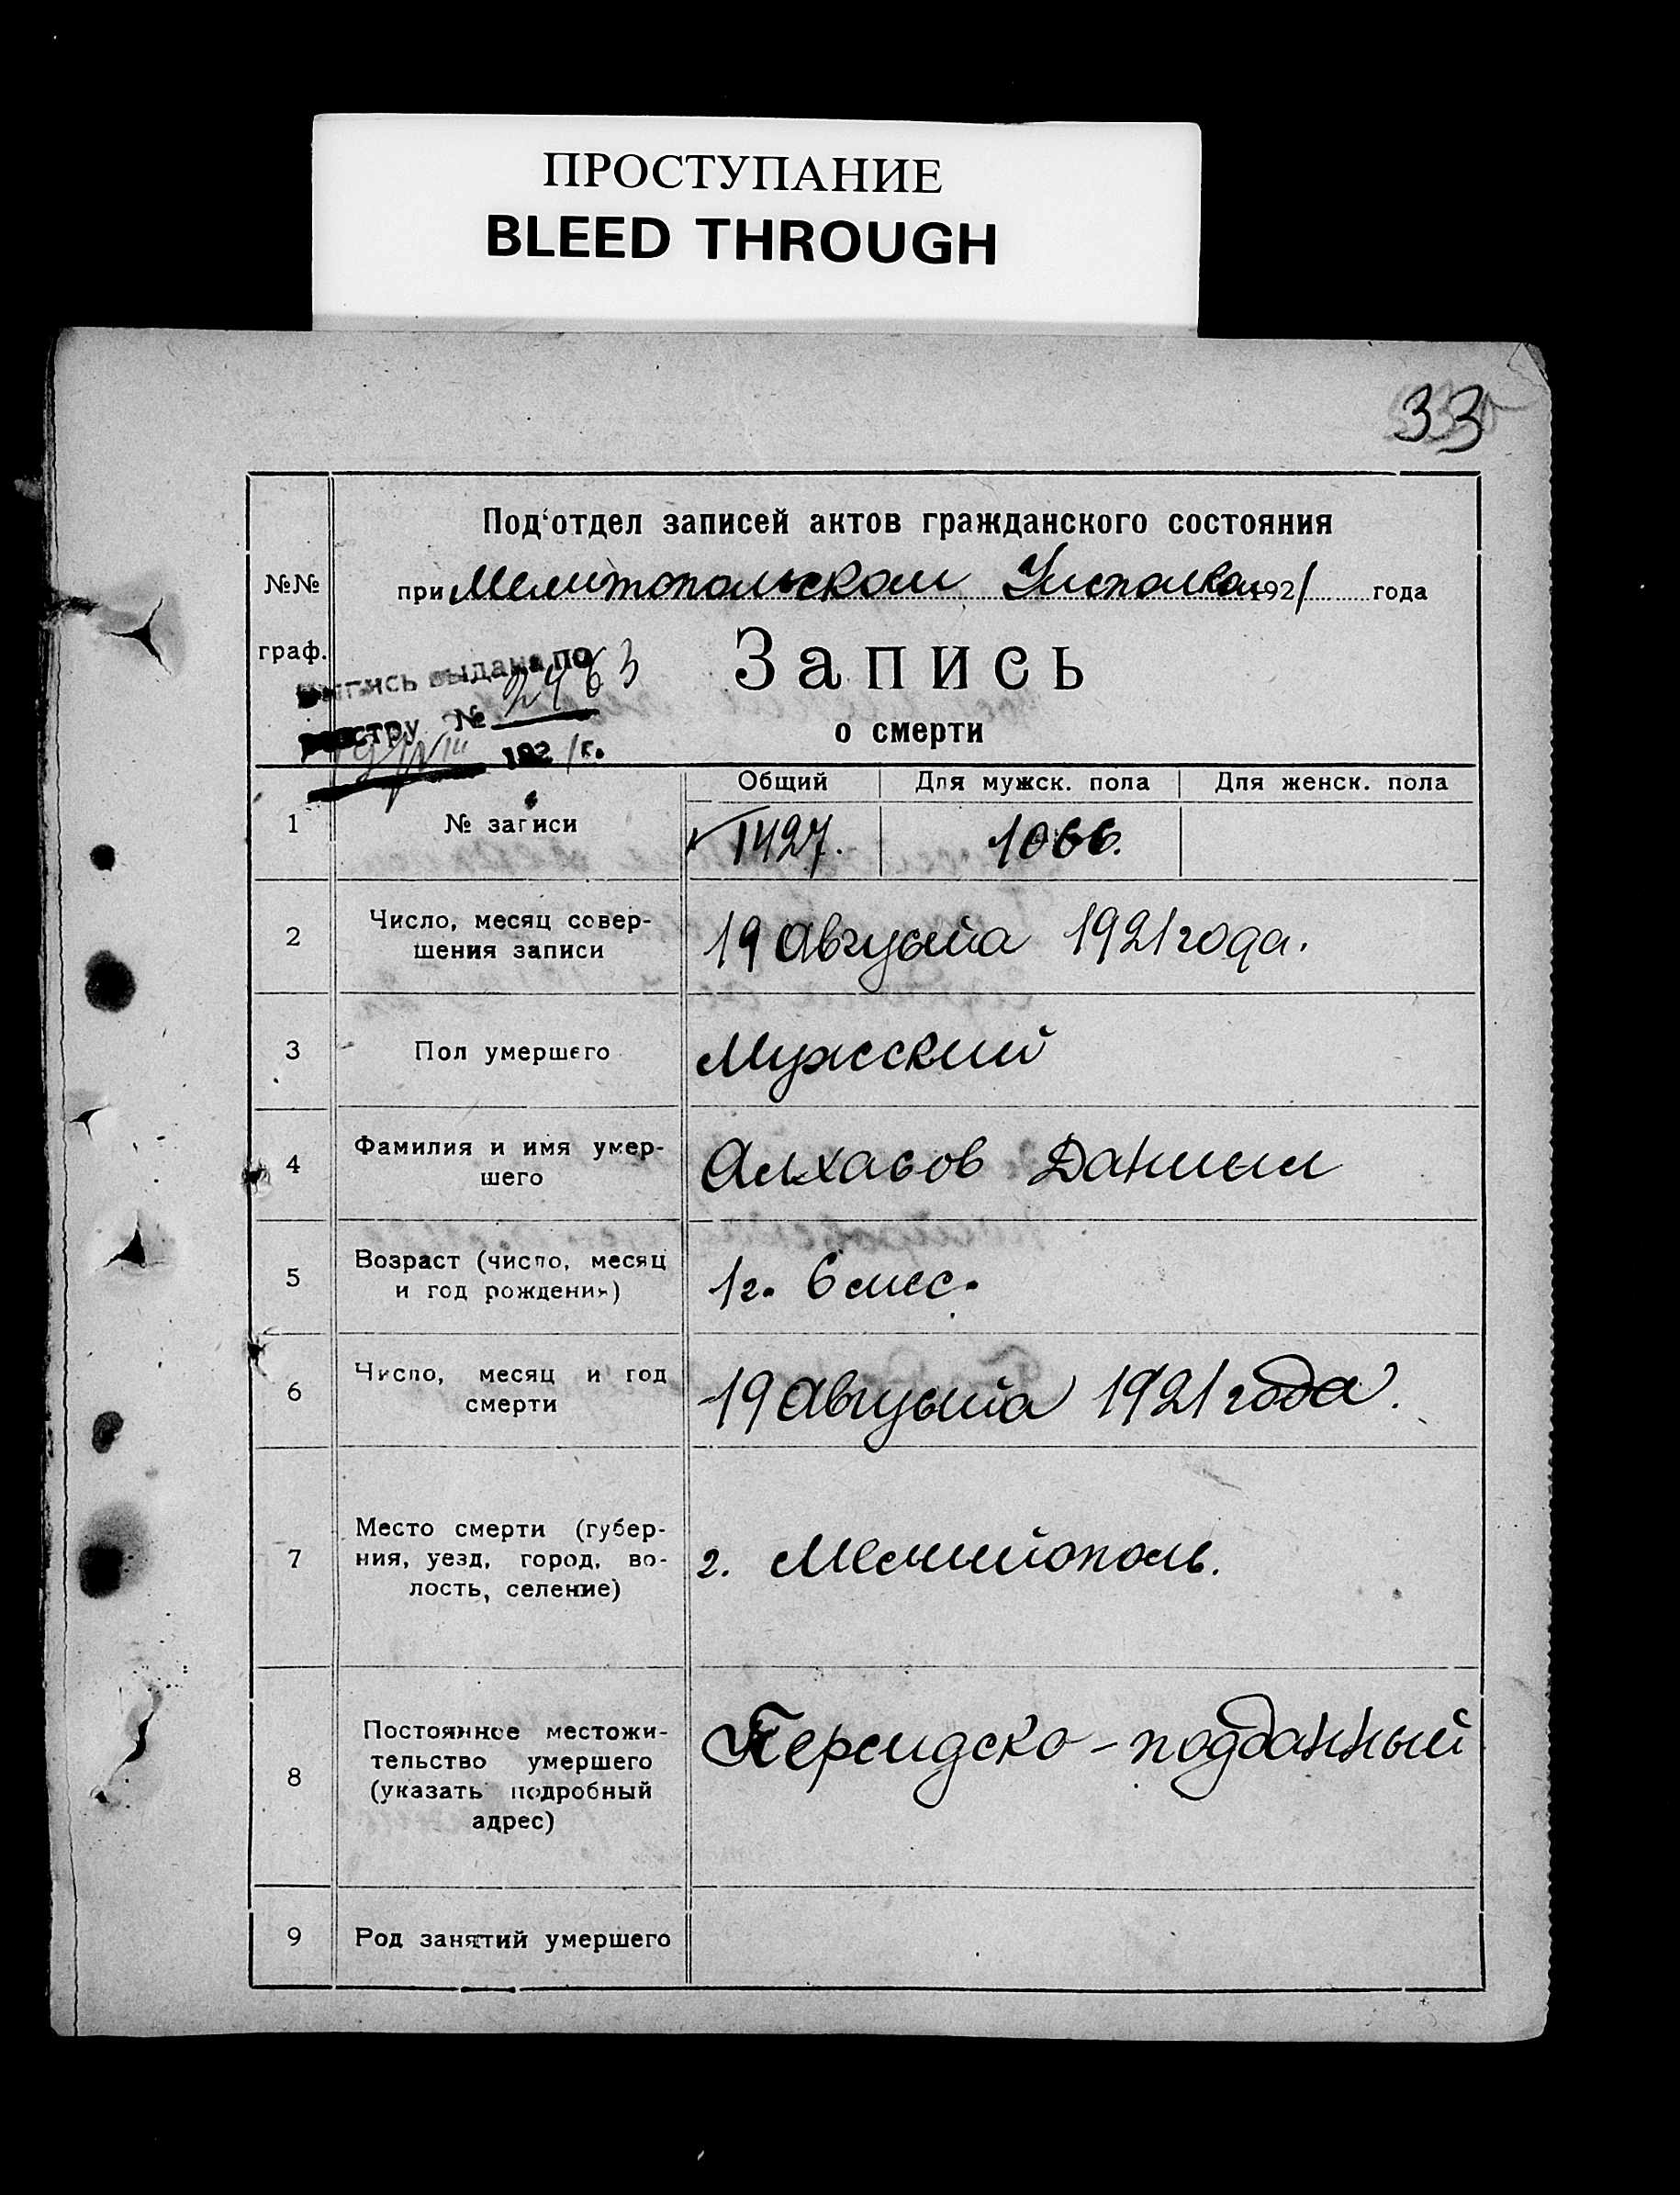 ПРОСТУПАНИЕ
BLEED THROUGH
33
Под'отдел записей актов гражданского состояния
№№
граф.
при Мелитопольском Уисполком 1921 года
Запись
о смерти
выдана по
реестру № 2463
192 1 г.
Общий Для мужск. пола Для женск. пола
1 № записи 1427. 1066.
2 Число, месяц совер-
шения записи
19 Августа 1921 года.
3 Пол умершего Мужский
4 Фамилия и имя умер-
шего
Алхасов Даниил
5 Возраст (число, месяц
и год рождения)
1г. 6 мес.
6 Число, месяц и год
смерти
19 Августа 1921 года.
7 Место смерти (губер-
ния, уезд, город, во-
лость, селение)
г. Мелитополь.
8 Постоянное местожи-
тельство умершего
(указать подробный
адрес)
Персидско-подданный
9 Род занятий умершего